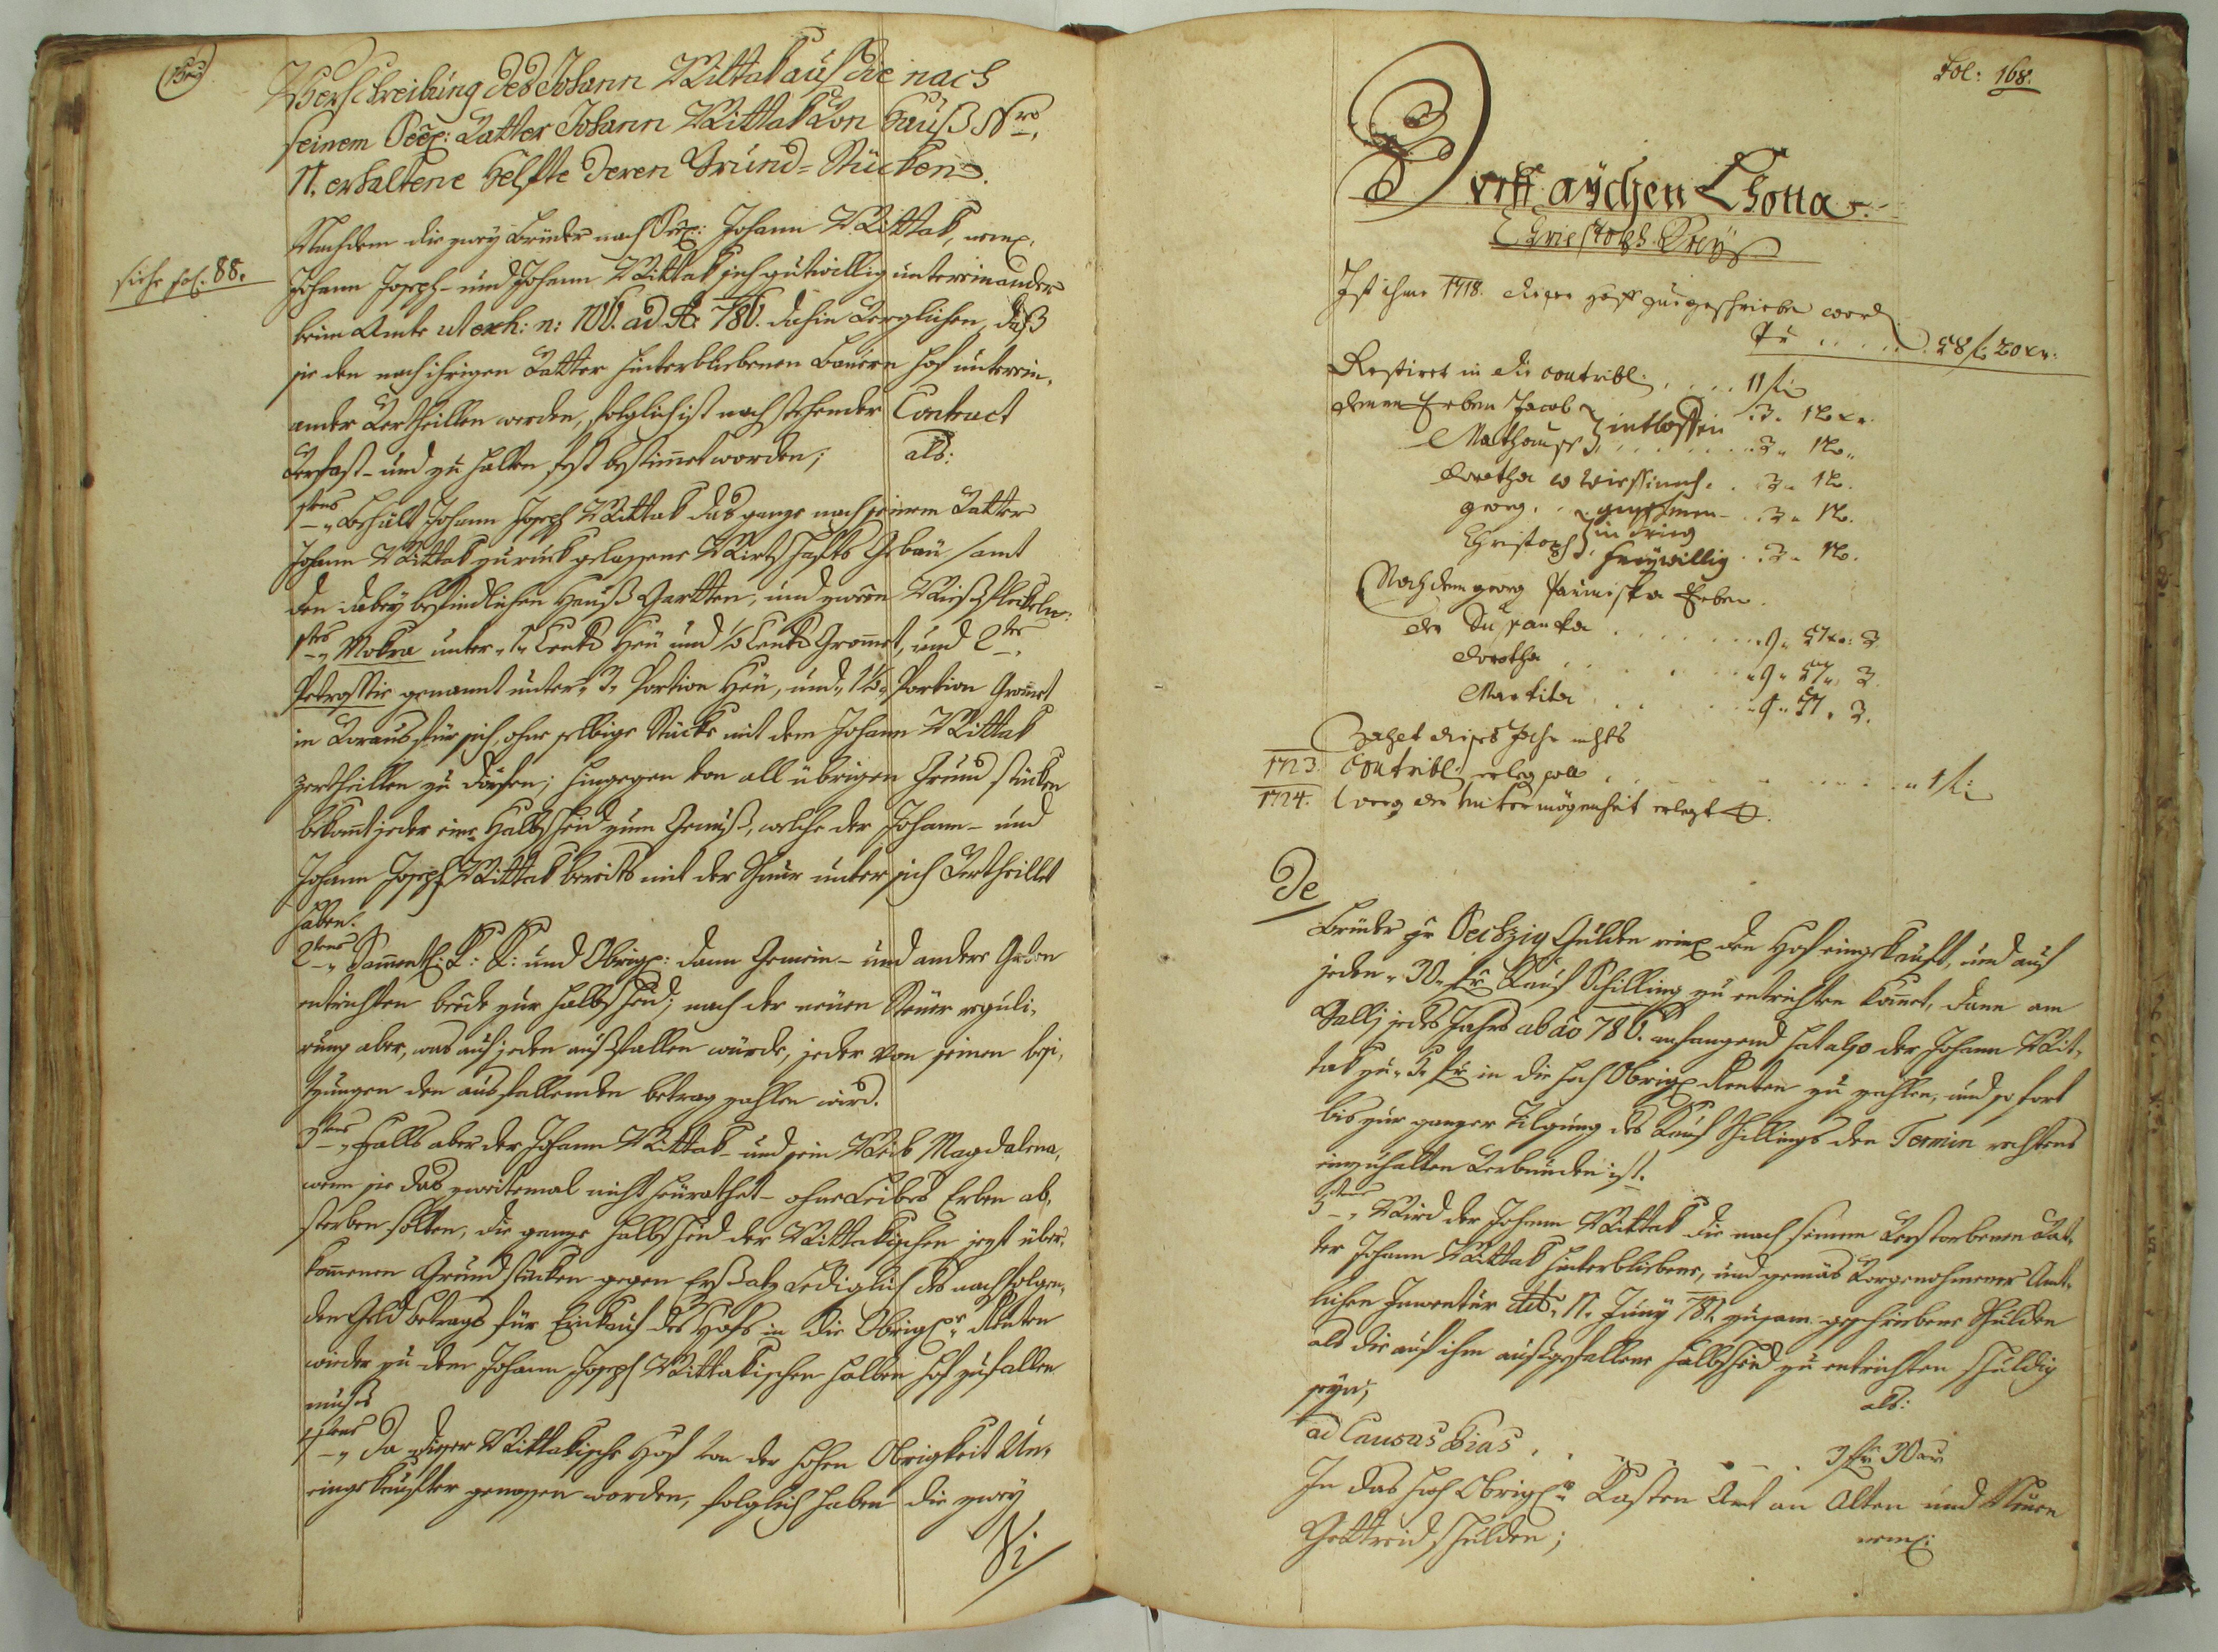 Verschreibung des Johann Wittak auf die nach
seinem Seel: Vatter Johann Wittak von Hauß Nro
11. erhaltene Helfte deren Grund-Stücken.
Nachdem die zwey Brüder nach Seel: Johann Wittak, neml:
siehe fol. 88.
Johann Joseph- und Johann Wittak sich gutwillig untereinander
beim Amte ut exh: n: 106. ad A: 786. dahin verglichen, daß
sie den nach ihrigen Vatter hinterbliebenen Bauern Hof unterein-
ander vertheillen werden, folglich ist nachstehender Contract
verfast- und zu halten fest bestimmet worden; als:
1tens Behält Johann Joseph Wittak das ganze nach seinem Vatter
Johann Wittak zurückgelassene Wirtschafts Gebäu samt
den dabey befindlichen Hauß Gartten, und zween Wießfleckeln:
1tes Mokra unter 1 Centr Heu und 1/2 Centr Grommet, und 2tes
genannt unter 3 Portion Heu, und 1 1/2 Portion Grommet
in Voraus für sich, ohne selbige Stücke mit dem Johann Wittak
zertheillen zu dörfen; hingegen von all übrigen Grundstücken
bekommt jeder eine Halbscheid zum Genuß, welche der Johann- und
Johann Joseph Wittak bereits mit der Schnur unter sich vertheillet
haben.
2tens Sammentl: K: K: und Obrigk: dann Gemein- und andere Gaben
entrichten beede zur Halbscheid; nach der neuen Steuer reguli-
rung aber, was auf jeden ausfallen würde, jeder von seinen besi-
tzungen den ausfallenden betrag zahlen wird.
3tens Falls aber der Johann Wittak- und sein Weib Magdalena,
wenn sie das zweitemal nicht heurathet- ohne Leibes Erben ab-
sterben sollten, die ganze Halbscheid der Wittakischen jezt über-
kommenen Grundstücken gegen Ersatz lediglich des nachfolgen-
den Geld betrags für Einkauf des Hofs in die Obrigk: Renten
wieder zu dem Johann Joseph Wittakischen halben Hof zufallen
müßte
4tens Da dieser Wittakische Hof von der hohen Obrigkeit Un-
eingekaufter genossen worden, folglich haben die zwey
Fol: 168.
Dorff aychen Lhotta
Christoph
Ist ihme 1718. dieser Hoff zugeschrieben word
Pr . . . . 58 f: 20 xr:
Restiret in die contribl: . . . 11 f:
denen Erben Jacob
Mathauß entloffen 3. 16 xr.
. . . 3. 16.
Dorotha . 3. 16.
georg. . . 3. 16.
Christoph freywillig . 3. 16.
Nach dem georg Erben.
der Susanka . . . 9. 57 xr: 3.
Dorotha . . . 9. 57. 3.
Markita . . . 9. 57. 3.
Zahlet dieses Jahr nichts
1723. Contribl: erlegen soll . . . 1 f:
1724. weeg der Unvermögenheit erlegt 0.
De
Brüder pr Sechzig Gulden rein den Hof eingekauft, und auf
jeden 30 fr Kauf Schilling zu entrichten kommt, dann am
Gallj jedes Jahrs ab ao 786. anfangend hat also der Johann Wit-
tak zu 3 fr in die hoh Obrigk: Renten zu zahlen, und so fort
bis zur ganzen Tilgung des Kauf Schillings den Termin rechtens
einzuhalten verbunden ist.
5tens Wird der Johann Wittak die nach seinem verstorbenen Vat-
ter Johann Wittak hinterbliebene, und gemäs vorgenohmener Amt-
lichen Inventur dto 11. Juny 781. zusam geschriebene Schulden
als die auf ihm ausgefallene Halbscheid zu entrichten schuldig
seyn; als:
ad Causas Pias . . . 3 fr 30 xr
In das hoh Obrigk: Kasten Amt an Alten und Neuen
Gettreid schulden; neml: